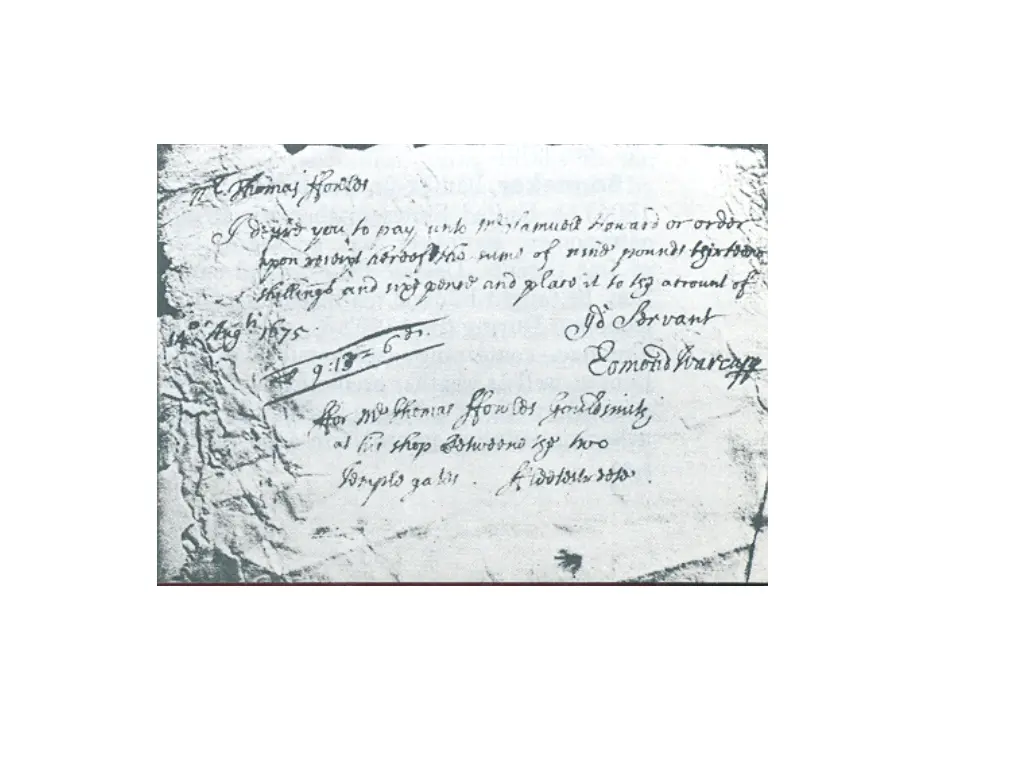 Mr. Thomas ffowles
I desire you to pay unto Mr Samuell Howard or order
upon receipt hereof the sume of nine pounds thirteene
shillings and sixe pence and place it to the account of
14o Augti 1675. Yor Servant
9:13=6d. Edmond Warcupp
ffor Mr Thomas ffowles Gouldsmith
at his shop Betweene the two
temple gates. ffleetestreete.